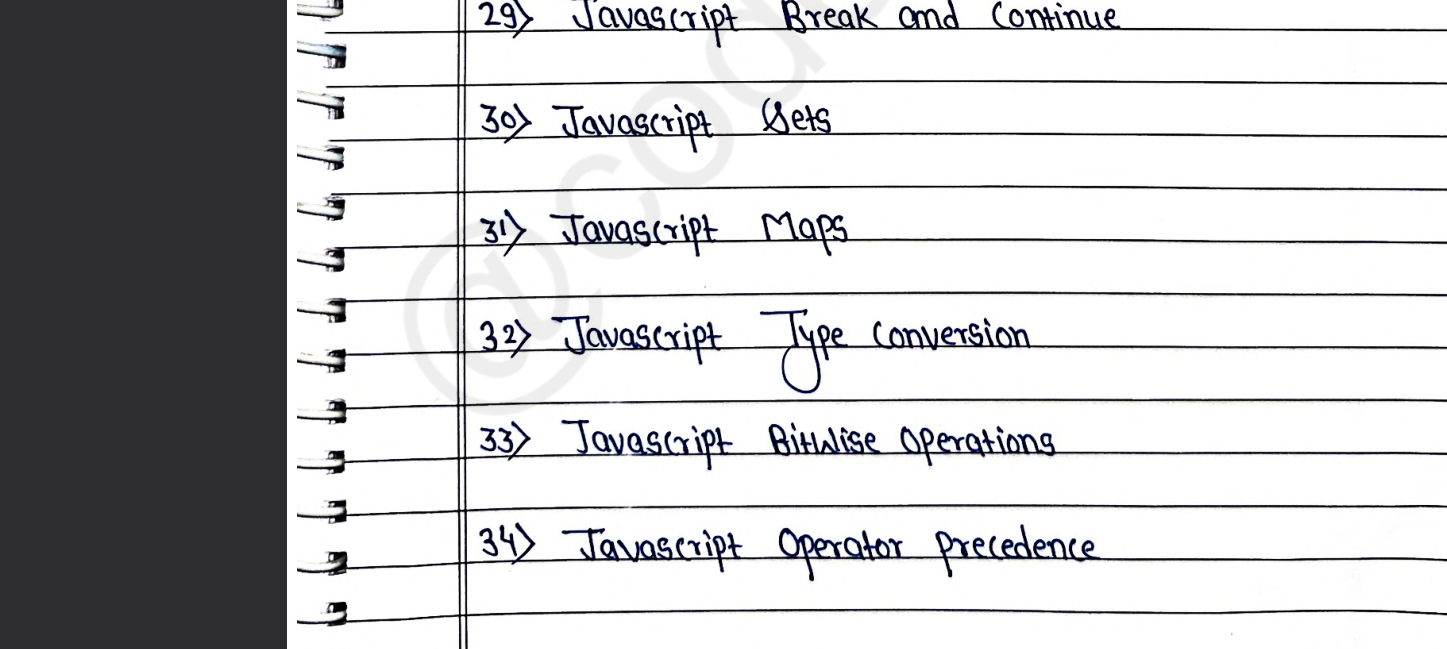 29) Javascript Break and Continue
30) Javascript Sets
31) Javascript Maps
32) Javascript Type Conversion
33) Javascript Bitwise Operations
34) Javascript Operator Precedence